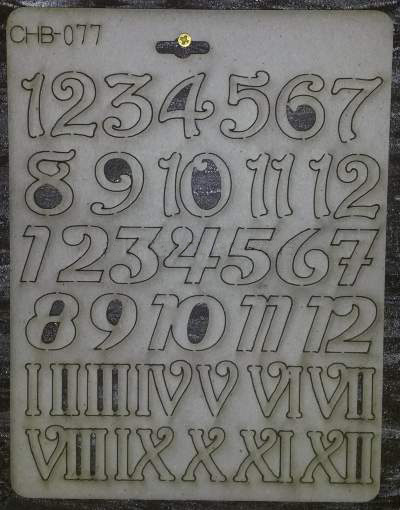 CHB-077
1 2 3 4 5 6 7
8 9 10 11 12
1 2 3 4 5 6 7
8 9 10 11 12
I II III IV V VI VII
VIII IX X XI XII